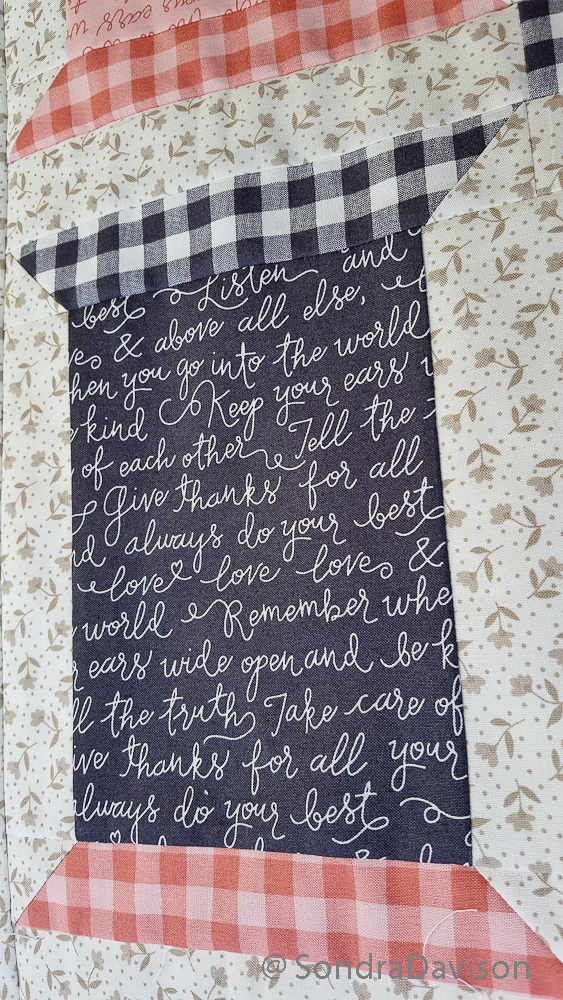 best Listen and
& above all else,
you go into the world
kind Keep your ears
of each other Tell the
Give thanks for all
always do your best
love love love &
world Remember whe
ears wide open and be k
the truth Take care of
ive thanks for all your
always do your best
@ SondraDavison